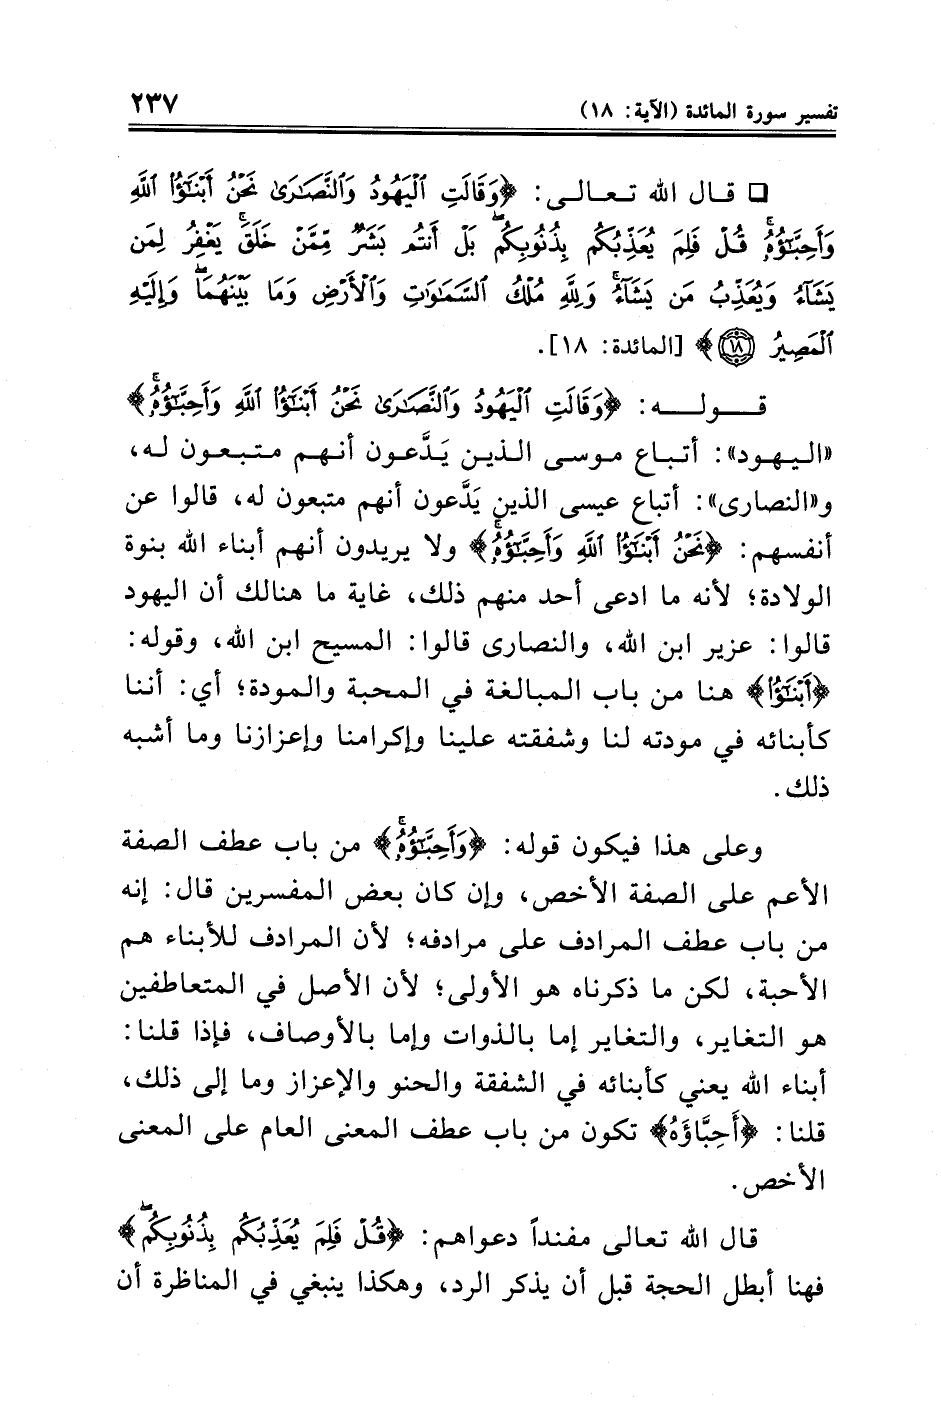 تفسير سورة المائدة (الآية: ١٨) ٢٣٧
❑ قال الله تعالى: ﴿وَقَالَتِ ٱلْيَهُودُ وَٱلنَّصَـٰرَىٰ نَحْنُ أَبْنَـٰٓؤُا۟ ٱللَّهِ
وَأَحِبَّـٰٓؤُهُۥ ۚ قُلْ فَلِمَ يُعَذِّبُكُم بِذُنُوبِكُم ۖ بَلْ أَنتُم بَشَرٌ مِّمَّنْ خَلَقَ ۚ يَغْفِرُ لِمَن
يَشَآءُ وَيُعَذِّبُ مَن يَشَآءُ ۚ وَلِلَّهِ مُلْكُ ٱلسَّمَـٰوَٰتِ وَٱلْأَرْضِ وَمَا بَيْنَهُمَا ۖ وَإِلَيْهِ
ٱلْمَصِيرُ ١٨﴾ [المائدة: ١٨].
قوله: ﴿وَقَالَتِ ٱلْيَهُودُ وَٱلنَّصَـٰرَىٰ نَحْنُ أَبْنَـٰٓؤُا۟ ٱللَّهِ وَأَحِبَّـٰٓؤُهُۥ ۚ﴾
«اليهود»: أتباع موسى الذين يَدَّعون أنهم متبعون له،
و«النصارى»: أتباع عيسى الذين يَدَّعون أنهم متبعون له، قالوا عن
أنفسهم: ﴿نَحْنُ أَبْنَـٰٓؤُا۟ ٱللَّهِ وَأَحِبَّـٰٓؤُهُۥ ۚ﴾ ولا يريدون أنهم أبناء الله بنوة
الولادة؛ لأنه ما ادعى أحد منهم ذلك، غاية ما هنالك أن اليهود
قالوا: عزير ابن الله، والنصارى قالوا: المسيح ابن الله، وقوله:
﴿أَبْنَـٰٓؤُا۟﴾ هنا من باب المبالغة في المحبة والمودة؛ أي: أننا
كأبنائه في مودته لنا وشفقته علينا وإكرامنا وإعزازنا وما أشبه
ذلك.
وعلى هذا فيكون قوله: ﴿وَأَحِبَّـٰٓؤُهُۥ ۚ﴾ من باب عطف الصفة
الأعم على الصفة الأخص، وإن كان بعض المفسرين قال: إنه
من باب عطف المرادف على مرادفه؛ لأن المرادف للأبناء هم
الأحبة، لكن ما ذكرناه هو الأولى؛ لأن الأصل في المتعاطفين
هو التغاير، والتغاير إما بالذوات وإما بالأوصاف، فإذا قلنا:
أبناء الله يعني كأبنائه في الشفقة والحنو والإعزاز وما إلى ذلك،
قلنا: ﴿أَحِبَّاؤَهُ﴾ تكون من باب عطف المعنى العام على المعنى
الأخص.
قال الله تعالى مفنداً دعواهم: ﴿قُلْ فَلِمَ يُعَذِّبُكُم بِذُنُوبِكُم ۖ﴾
فهنا أبطل الحجة قبل أن يذكر الرد، وهكذا ينبغي في المناظرة أن